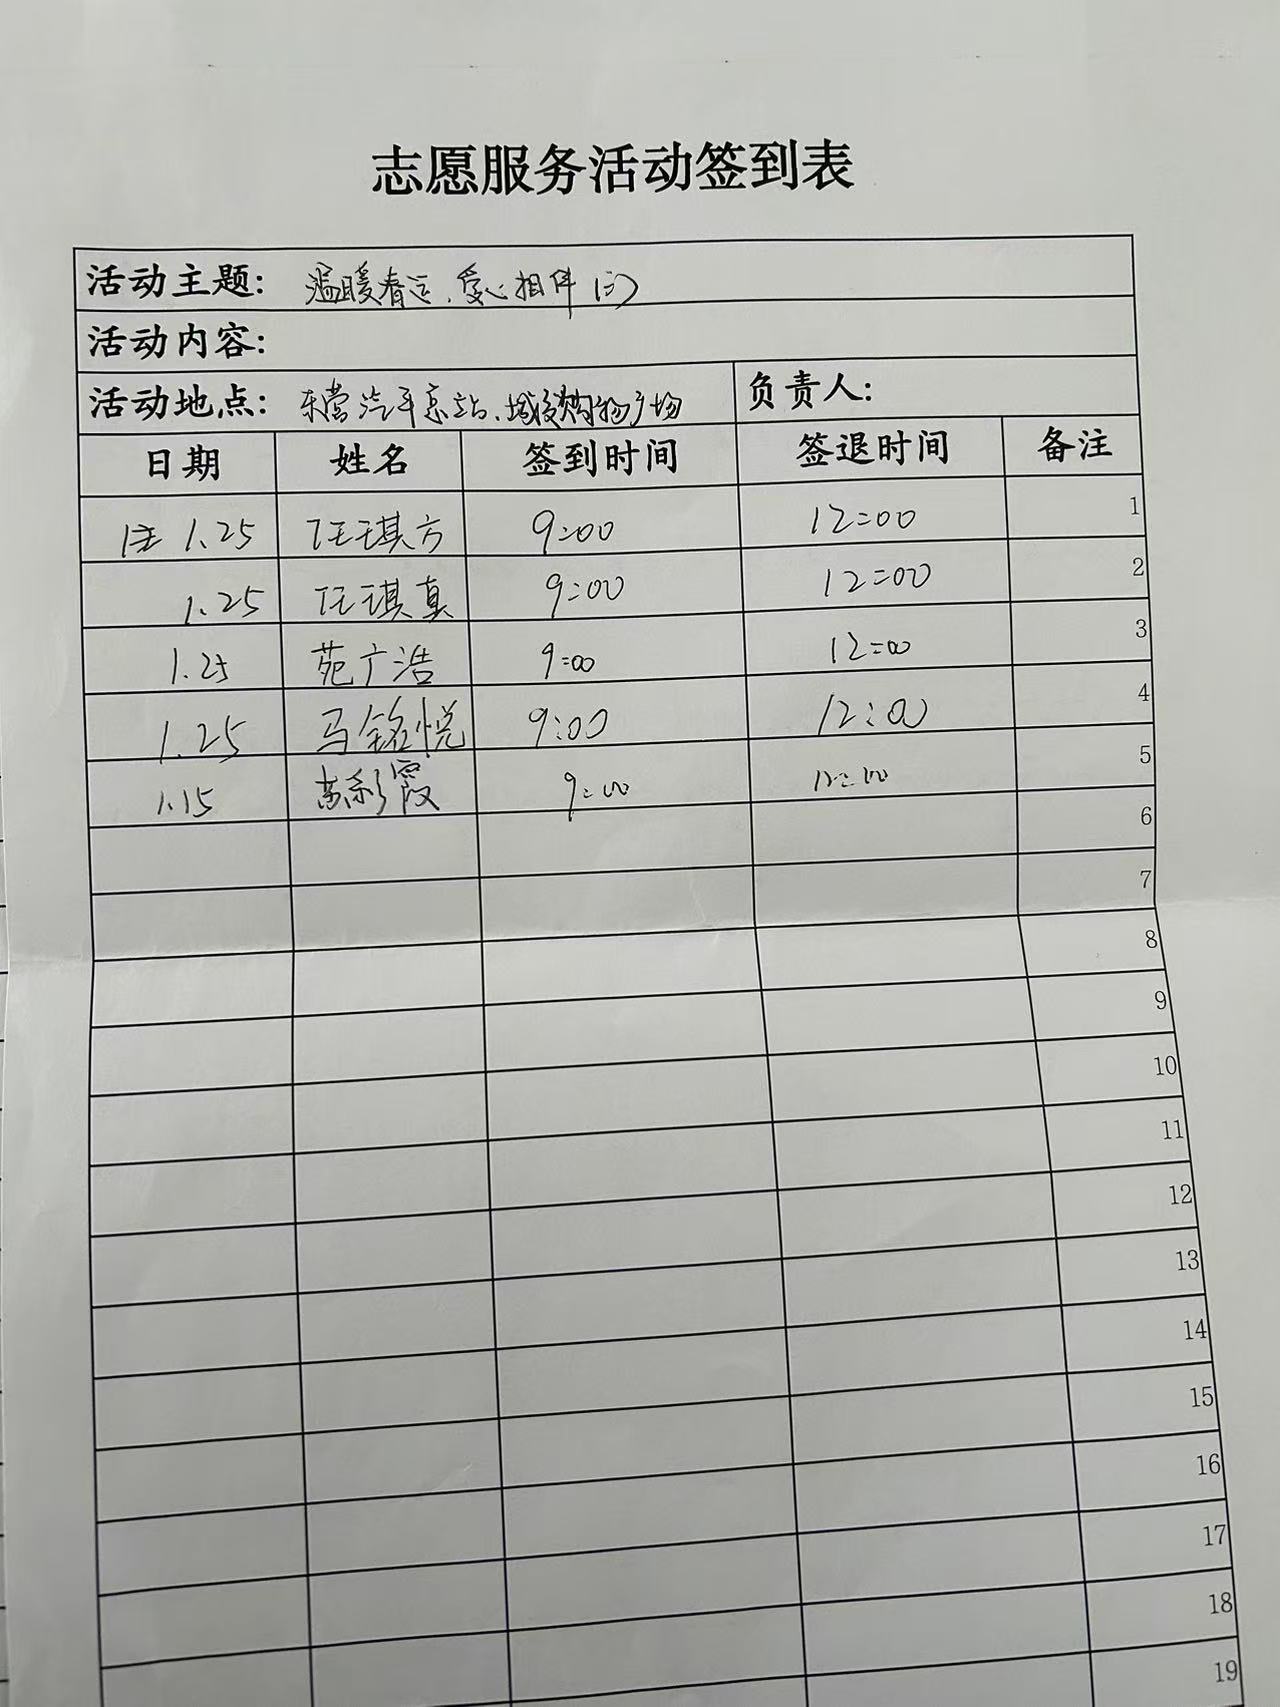 志愿服务活动签到表
活动主题: 温暖春运、爱心相伴(三)
活动内容:
活动地点: 东营汽车总站、购物广场 负责人:
日期 姓名 签到时间 签退时间 备注
1.25 任琪方 9:00 12:00 1
1.25 任琪真 9:00 12:00 2
1.25 苑广浩 9:00 12:00 3
1.25 马铭悦 9:00 12:00 4
1.15 苏彩霞 9:00 12:00 5
6
7
8
9
10
11
12
13
14
15
16
17
18
19